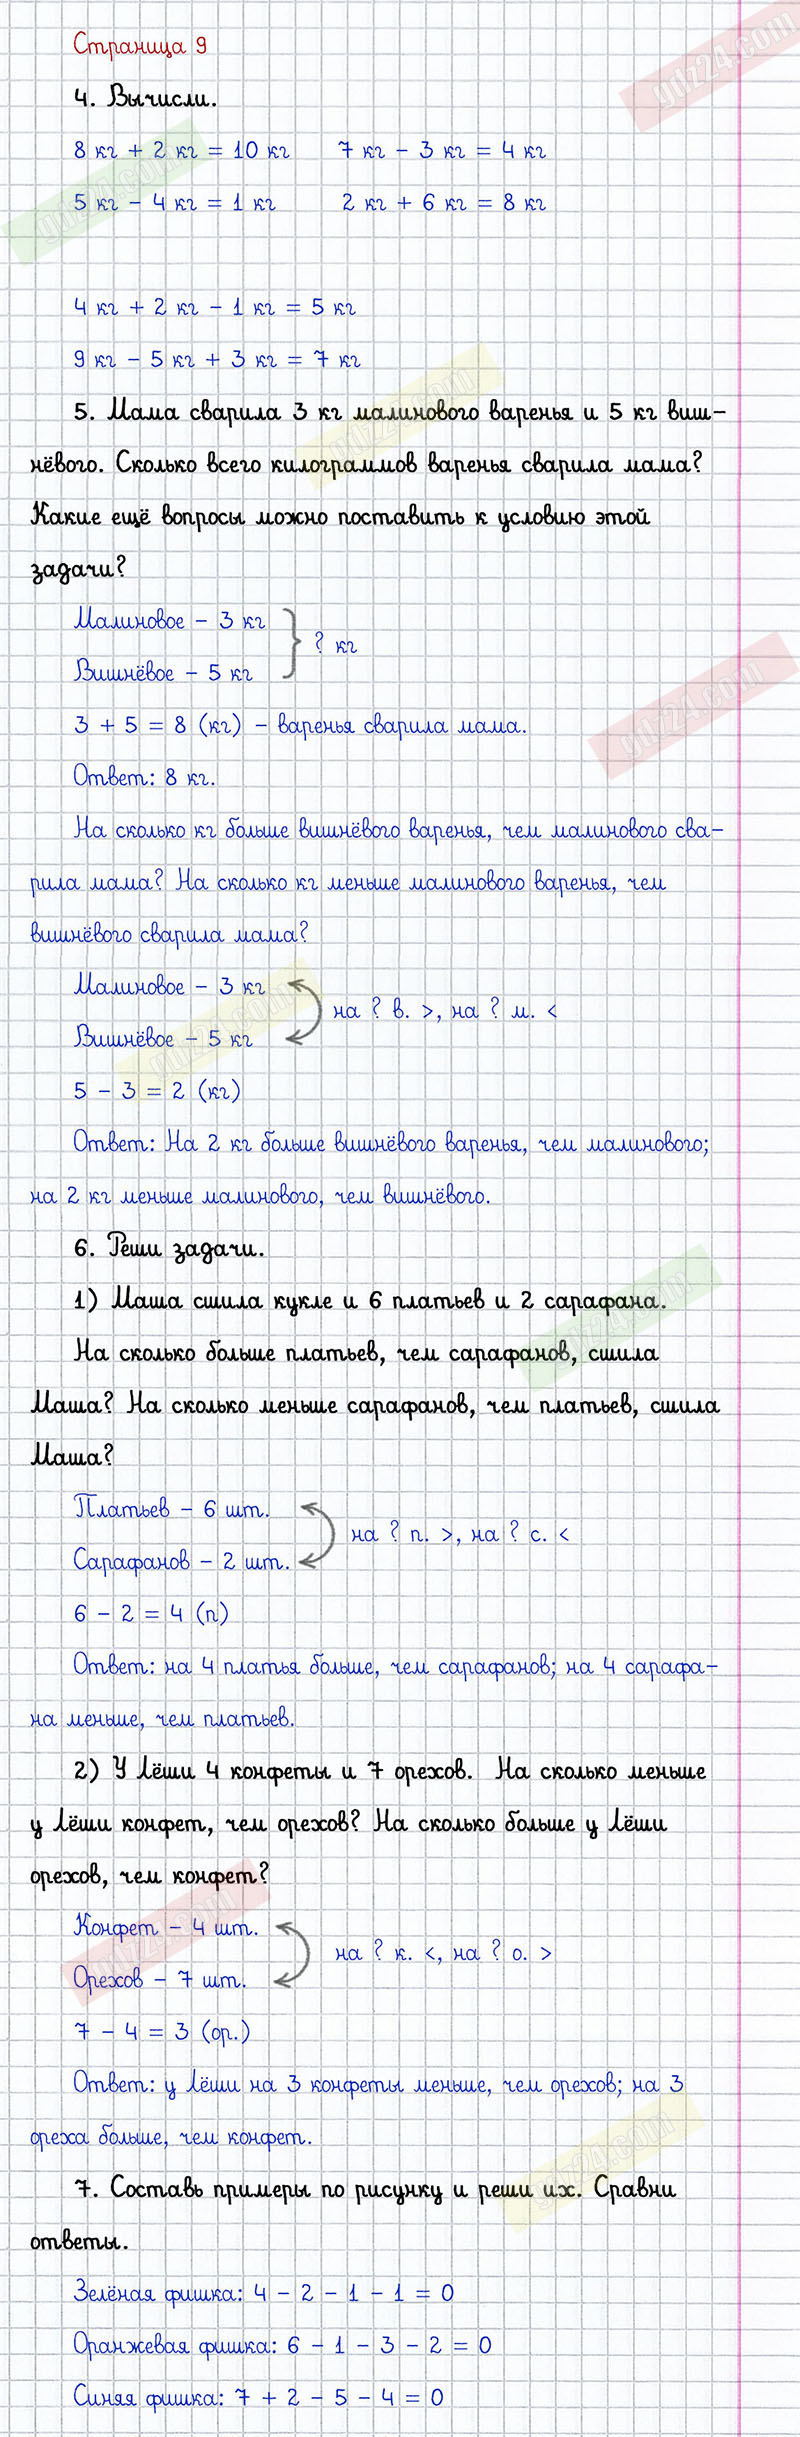 Страница 9
4. Вычисли.
8 кг + 2 кг = 10 кг 7 кг – 3 кг = 4 кг
5 кг – 4 кг = 1 кг 2 кг + 6 кг = 8 кг
4 кг + 2 кг – 1 кг = 5 кг
9 кг – 5 кг + 3 кг = 7 кг
5. Мама сварила 3 кг малинового варенья и 5 кг виш–
нёвого. Сколько всего килограммов варенья сварила мама?
Какие ещё вопросы можно поставить к условию этой
задачи?
Малиновое – 3 кг
? кг
Вишнёвое – 5 кг
3 + 5 = 8 (кг) – варенья сварила мама.
Ответ: 8 кг.
На сколько кг больше вишнёвого варенья, чем малинового сва–
рила мама? На сколько кг меньше малинового варенья, чем
вишнёвого сварила мама?
Малиновое – 3 кг
на ? в. >, на ? м. <
Вишнёвое – 5 кг
5 – 3 = 2 (кг)
Ответ: На 2 кг больше вишнёвого варенья, чем малинового;
на 2 кг меньше малинового, чем вишнёвого.
6. Реши задачи.
1) Маша сшила кукле и 6 платьев и 2 сарафана.
На сколько больше платьев, чем сарафанов, сшила
Маша? На сколько меньше сарафанов, чем платьев, сшила
Маша?
Платьев – 6 шт.
на ? п. >, на ? с. <
Сарафанов – 2 шт.
6 – 2 = 4 (п)
Ответ: на 4 платья больше, чем сарафанов; на 4 сарафа–
на меньше, чем платьев.
2) У Лёши 4 конфеты и 7 орехов. На сколько меньше
у Лёши конфет, чем орехов? На сколько больше у Лёши
орехов, чем конфет?
Конфет – 4 шт.
на ? к. <, на ? о. >
Орехов – 7 шт.
7 – 4 = 3 (ор.)
Ответ: у Лёши на 3 конфеты меньше, чем орехов; на 3
ореха больше, чем конфет.
7. Составь примеры по рисунку и реши их. Сравни
ответы.
Зелёная фишка: 4 – 2 – 1 – 1 = 0
Оранжевая фишка: 6 – 1 – 3 – 2 = 0
Синяя фишка: 7 + 2 – 5 – 4 = 0
gdz24.com
gdz24.com
gdz24.com
gdz24.com
gdz24.com
gdz24.com
gdz24.com
gdz24.com